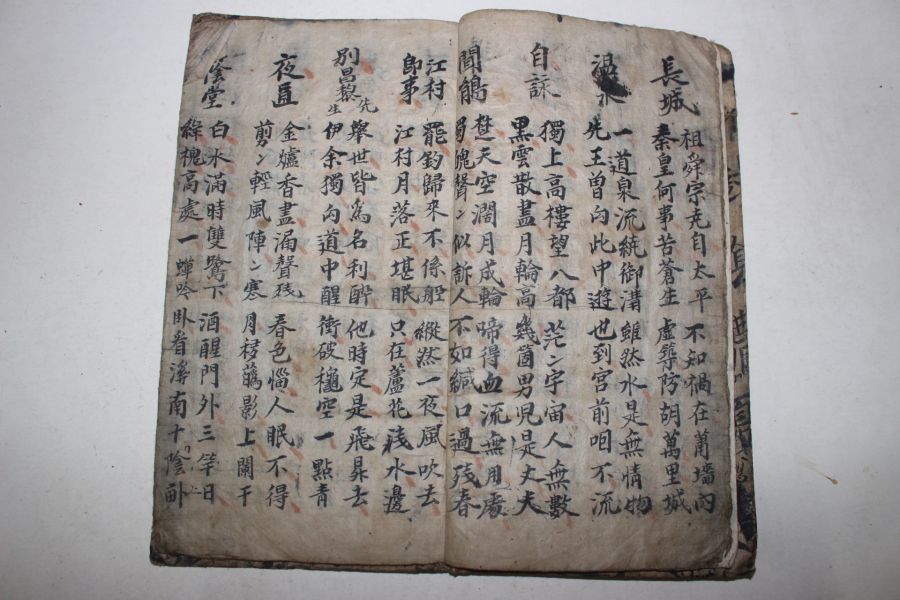 長城
祖舜宗堯自太平 不知禍在蕭墻內
秦皇何事苦蒼生 虛築防胡萬里城
一道泉流統御溝 雖然水是無情物
先王曾向此中遊 也到宮前咽不流
自詠
獨上高樓望八都 茫〻宇宙人無數
黑雲散盡月輪高 幾箇男兒是丈夫
聞鵑
楚天空濶月成輪 啼得血流無用處
蜀魄聲〻似訴人 不如緘口過殘春
江村即事
罷釣歸來不係船 縱然一夜風吹去
江村月落正堪眠 只在蘆花淺水邊
別昌黎先生
擧世皆爲名利醉 他時定是飛昇去
伊余獨向道中醒 衝破穐空一點青
夜直
金爐香盡漏聲殘 春色惱人眠不得
剪〻輕風陣〻寒 月移蘤影上闌干
蔭堂
白水滿時雙鷺下 酒醒門外三竿日
綠槐高處一蟬吟 卧看溪南十陰畝